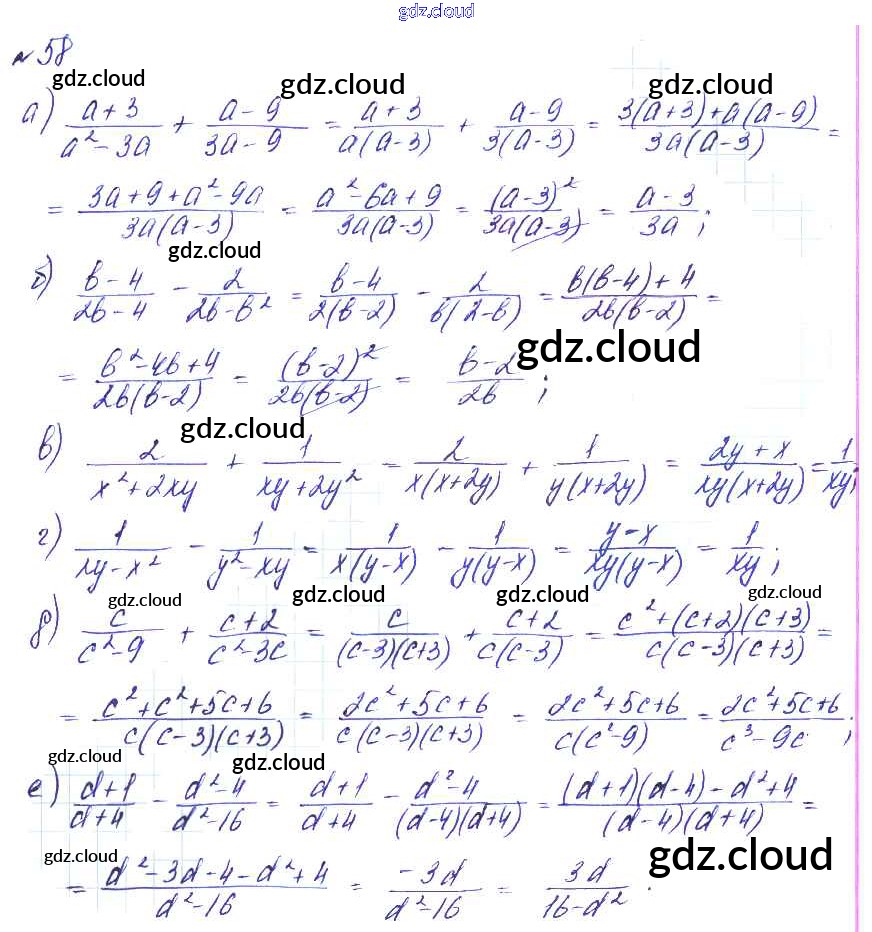 gdz.cloud
№58
gdz.cloud gdz.cloud gdz.cloud
а) (a+3)/(a²-3a) + (a-9)/(3a-9) = (a+3)/(a(a-3)) + (a-9)/(3(a-3)) = (3(a+3)+a(a-9))/(3a(a-3)) =
= (3a+9+a²-9a)/(3a(a-3)) = (a²-6a+9)/(3a(a-3)) = (a-3)²/(3a(a-3)) = (a-3)/(3a);
gdz.cloud
б) (b-4)/(2b-4) - 2/(2b-b²) = (b-4)/(2(b-2)) - 2/(b(2-b)) = (b(b-4)+4)/(2b(b-2)) =
gdz.cloud
= (b²-4b+4)/(2b(b-2)) = (b-2)²/(2b(b-2)) = (b-2)/(2b);
gdz.cloud
в) 2/(x²+2xy) + 1/(xy+2y²) = 2/(x(x+2y)) + 1/(y(x+2y)) = (2y+x)/(xy(x+2y)) = 1/(xy);
г) 1/(xy-x²) - 1/(y²-xy) = 1/(x(y-x)) - 1/(y(y-x)) = (y-x)/(xy(y-x)) = 1/(xy);
gdz.cloud gdz.cloud gdz.cloud gdz.cloud
д) c/(c²-9) + (c+2)/(c²-3c) = c/((c-3)(c+3)) + (c+2)/(c(c-3)) = (c²+(c+2)(c+3))/(c(c-3)(c+3)) =
= (c²+c²+5c+6)/(c(c-3)(c+3)) = (2c²+5c+6)/(c(c-3)(c+3)) = (2c²+5c+6)/(c(c²-9)) = (2c²+5c+6)/(c³-9c);
gdz.cloud gdz.cloud
е) (d+1)/(d+4) - (d²-4)/(d²-16) = (d+1)/(d+4) - (d²-4)/((d-4)(d+4)) = ((d+1)(d-4)-d²+4)/((d-4)(d+4)) =
gdz.cloud gdz.cloud
= (d²-3d-4-d²+4)/(d²-16) = (-3d)/(d²-16) = 3d/(16-d²).